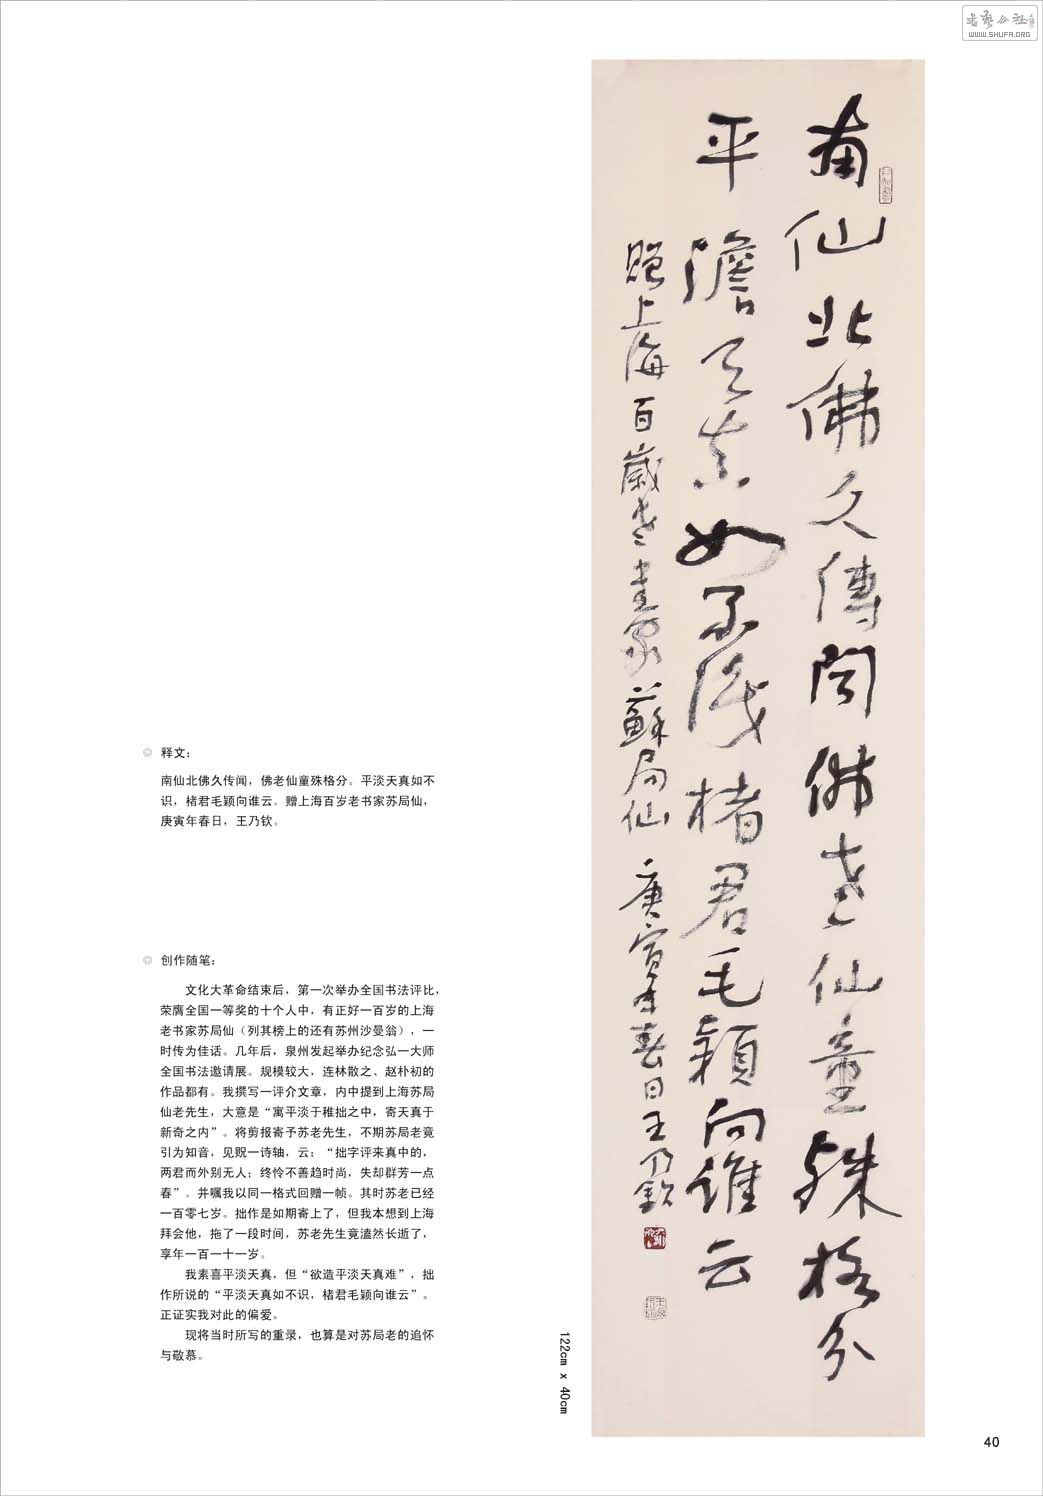 书艺公社
WWW.SHUFA.ORG
南仙北佛久傳闻佛老仙童殊格分
平澹天真如不識楮君毛穎向誰云
贈上海百歲老書家蘇局仙 庚寅年春日王乃欽
◎ 释文：
南仙北佛久传闻，佛老仙童殊格分。平淡天真如不
识，楮君毛颖向谁云。赠上海百岁老书家苏局仙，
庚寅年春日，王乃钦。
◎ 创作随笔：
文化大革命结束后，第一次举办全国书法评比，
荣膺全国一等奖的十个人中，有正好一百岁的上海
老书家苏局仙（列其榜上的还有苏州沙曼翁），一
时传为佳话。几年后，泉州发起举办纪念弘一大师
全国书法邀请展。规模较大，连林散之、赵朴初的
作品都有。我撰写一评介文章，内中提到上海苏局
仙老先生，大意是“寓平淡于稚拙之中，寄天真于
新奇之内”。将剪报寄予苏老先生，不期苏局老竟
引为知音，见贶一诗轴，云：“拙字评来真中的，
两君而外别无人；终怜不善趋时尚，失却群芳一点
春”。并嘱我以同一格式回赠一帧。其时苏老已经
一百零七岁。拙作是如期寄上了，但我本想到上海
拜会他，拖了一段时间，苏老先生竟溘然长逝了，
享年一百一十一岁。
我素喜平淡天真，但“欲造平淡天真难”，拙
作所说的“平淡天真如不识，楮君毛颖向谁云”。
正证实我对此的偏爱。
现将当时所写的重录，也算是对苏局老的追怀
与敬慕。
122cm x 40cm
40